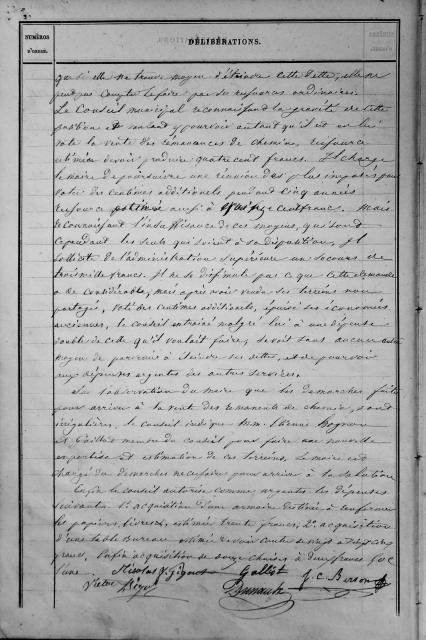 NUMÉROS
D'ORDRE.
DÉLIBÉRATIONS.
que si elle ne trouve moyen d'éteindre cette dette, elle ne
peut pas compter le faire par ses ressources ordinaires.
Le Conseil municipal reconnaissant la gravité de cette
position et voulant y pourvoir autant qu'il est en lui
vote la vente des remanances de chemins, ressource
estimée devoir produire quatre cent francs. Il charge
le maire de poursuivre une réunion des plus imposés pour
voter des centimes additionnels pendant cinq années
ressource estimée aussi à cent franc. Mais
reconnaissant l'insuffisance de ces moyens, qui sont
cependant les seuls qui soient à sa disposition, Il
sollicite de l'administration supérieure un secours de
trois mille francs. Il ne se dissimule pas ce que cette demande
a de considérable, mais après avoir vendu ses terrains non
partagés, voté des centimes additionnels, épuisé ses économies
anciennes, le conseil entrainé malgré lui à une dépense
double de celle qu'il voulait faire, se voit sans aucun autre
moyen de parvenir à éteindre ses dettes, et de pourvoir
aux dépenses urgentes des autres services.
Sur l'observation du maire que les démarches faites
pour arriver à la vente des remanents de chemin, sont
irrégulières, le conseil indique MM. Etienne
et Gaillot membres du conseil pour faire une nouvelle
expertise et estimation de ces terrains. Le maire est
chargé des démarches nécessaires pour arriver à la solution
Enfin le conseil autorise comme urgentes les dépenses
suivantes 1° acquisition d'une armoire destinée à renfermer
les papiers, livres, estimée trente francs, 2° acquisition
d'une table Bureau
francs, Enfin acquisition de chaises à deux francs
l'une. Nicolas Gallot J. C. Berson
Victor